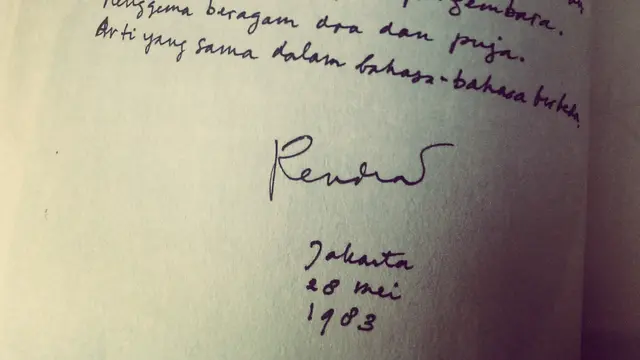 pengembara.
Menggema beragam doa dan puja.
Arti yang sama dalam bahasa-bahasa berbeda.
Rendra
Jakarta
28 mei
1983